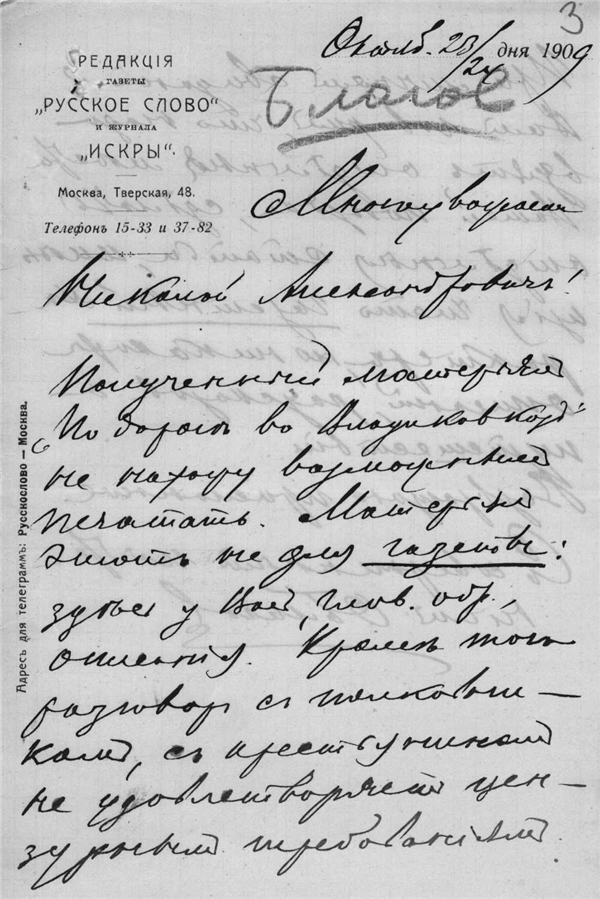 3
Октяб. 23/24 дня 1909
Благов
РЕДАКЦІЯ
ГАЗЕТЫ
„РУССКОЕ СЛОВО“
И ЖУРНАЛА
„ИСКРЫ“.
Москва, Тверская, 48.
Телефонъ 15-33 и 37-82
Многоуважаем
Николай Александровичъ!
Полученный матерьял
„По дороге во Владикавказ“
не нахожу возможным
печатать. Матерьял
этотъ не для газеты:
здесь у Вас, глав. обр.,
описания. Кроме того
разговор съ полковни-
комъ, съ преступником
не удовлетворяетъ цен-
зурнымъ требованіям.
Адресъ для телеграммъ: Русскослово — Москва.